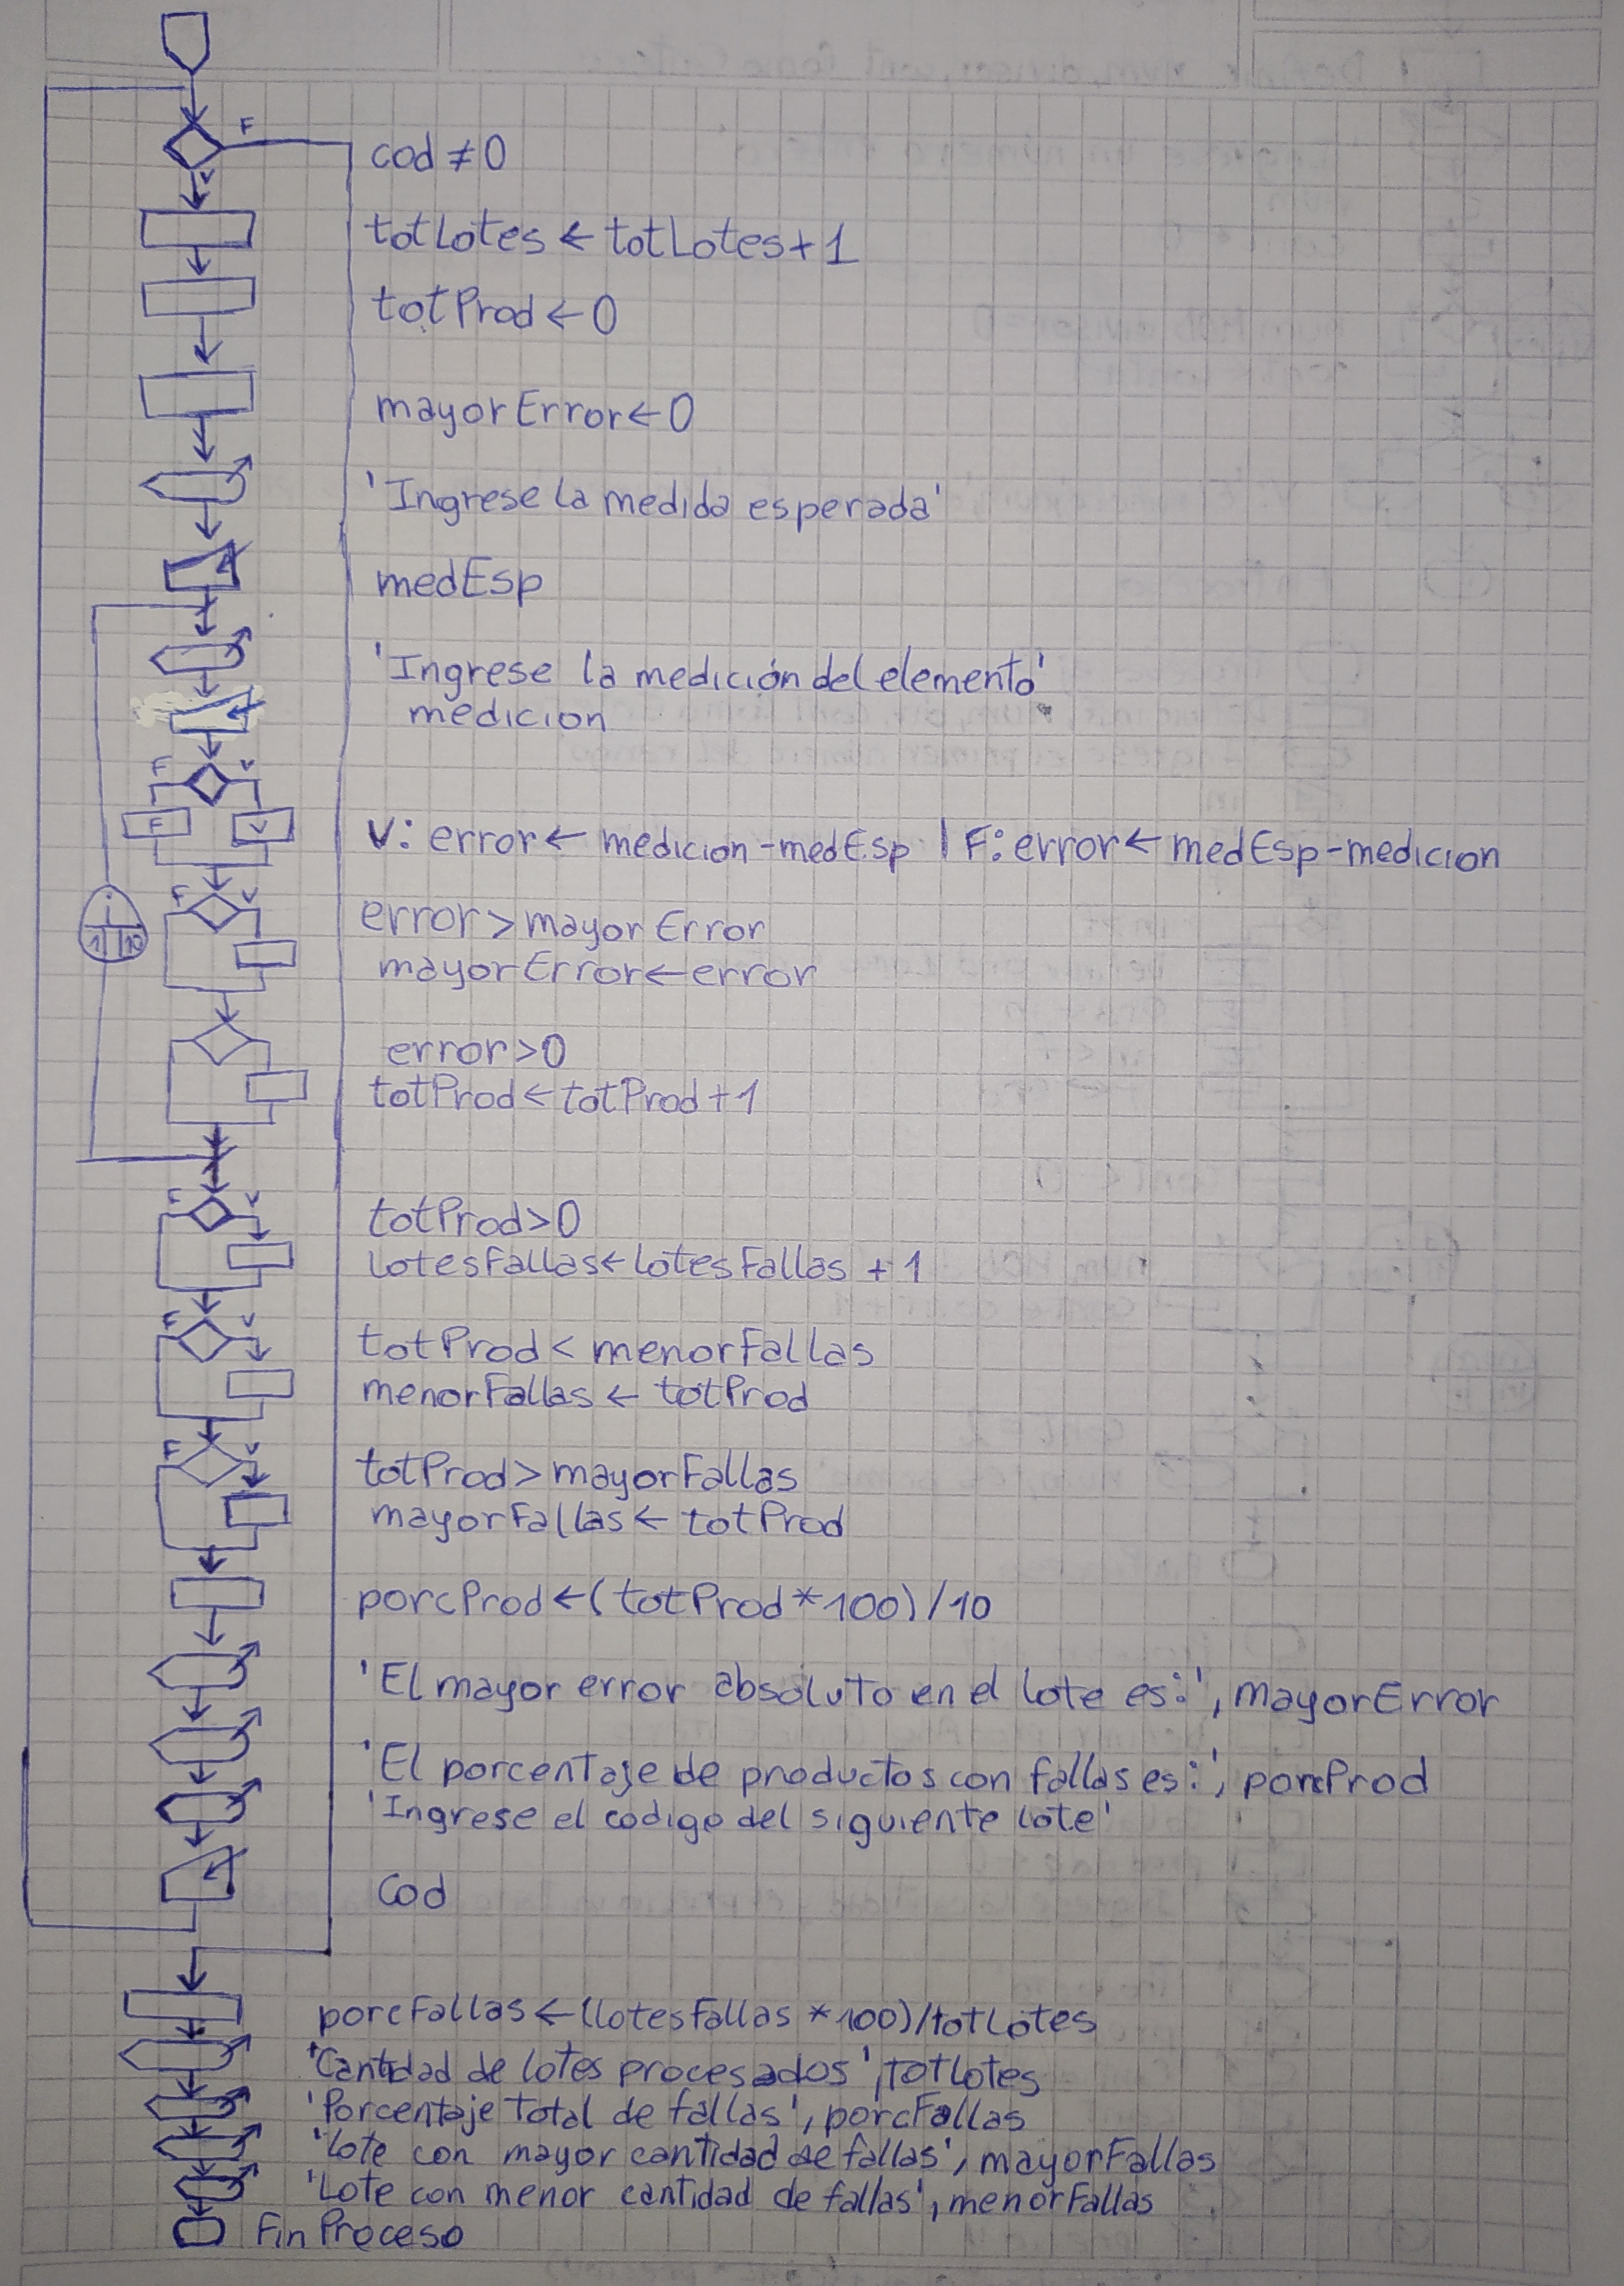 F
cod ≠ 0
V
totLotes ← totLotes + 1
totProd ← 0
mayorError ← 0
'Ingrese la medida esperada'
medEsp
'Ingrese la medición del elemento'
medicion
F V
F V
V: error ← medicion - medEsp | F: error ← medEsp - medicion
F V
error > mayorError
i
1 10
mayorError ← error
error > 0
totProd ← totProd + 1
F V
totProd > 0
lotesFallas ← lotesFallas + 1
F V
totProd < menorFallas
menorFallas ← totProd
F V
totProd > mayorFallas
mayorFallas ← totProd
porcProd ← (totProd * 100) / 10
'El mayor error absoluto en el lote es:', mayorError
'El porcentaje de productos con fallas es:', porcProd
'Ingrese el codigo del siguiente lote'
Cod
porcFallas ← (lotesFallas * 100) / totLotes
'Cantidad de lotes procesados', totLotes
'Porcentaje total de fallas', porcFallas
'Lote con mayor cantidad de fallas', mayorFallas
'Lote con menor cantidad de fallas', menorFallas
Fin Proceso